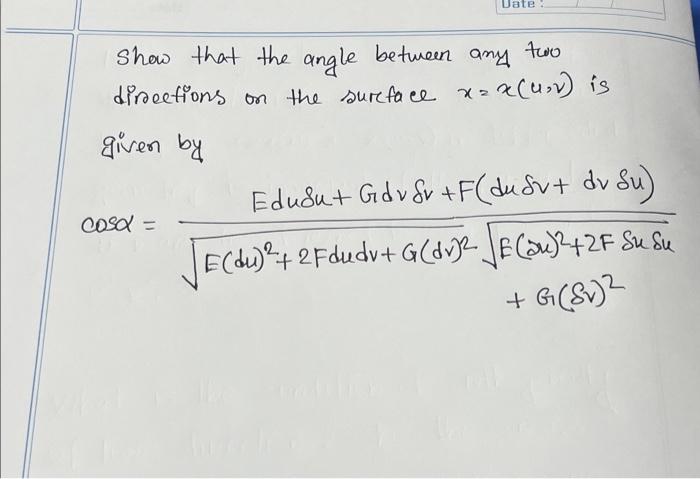 Date :
Show that the angle between any two
directions on the surface x = x(u,v) is
given by
cosα = EduSu + GdvSv + F(duSv + dvSu)
√E(du)²+ 2Fdudv + G(dv)² √E(Su)²+2F Su Su
+ G(Sv)²